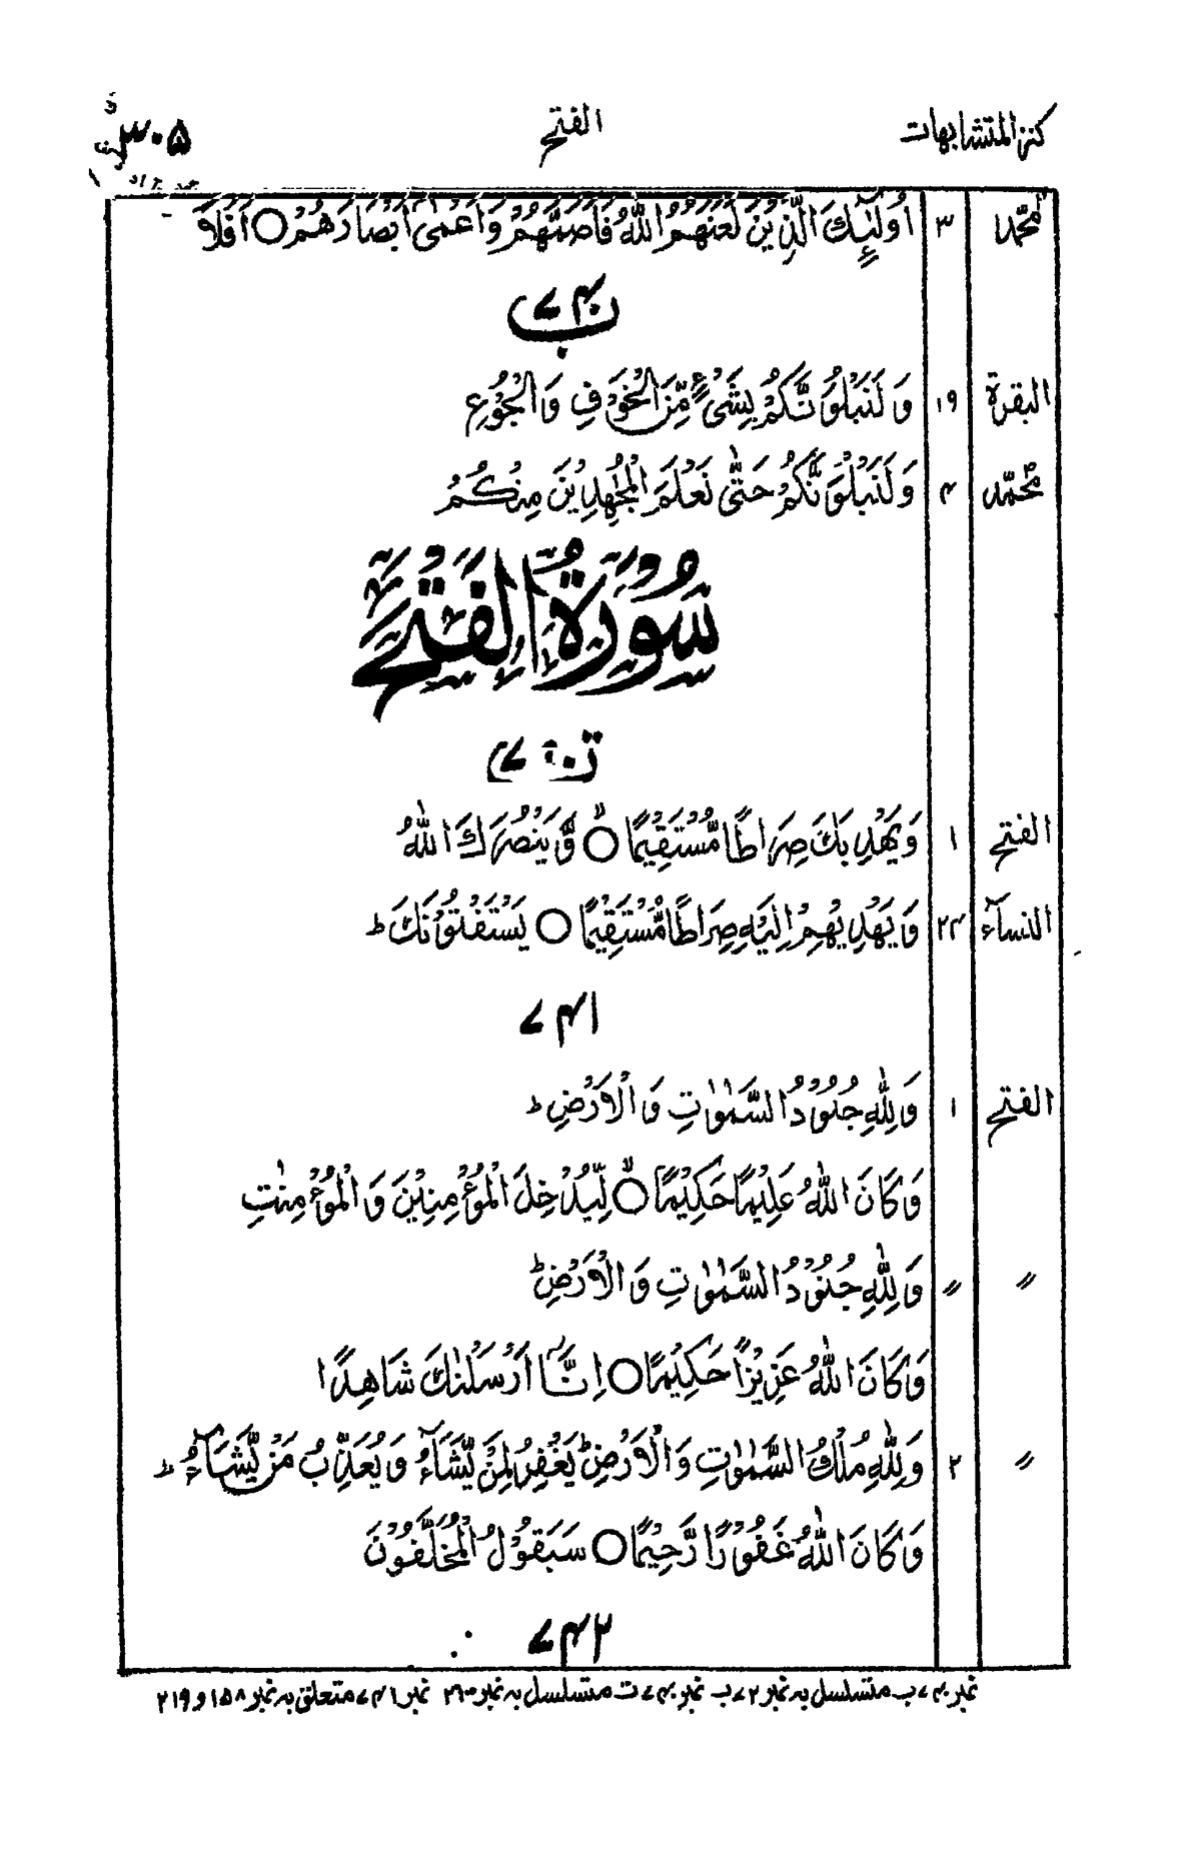 كنز المتشابهات الفتح ٣٠۵
محمّد ٣ اُولٰٓئِكَ الَّذِيْنَ لَعَنَهُمُ اللّٰهُ فَاَصَمَّهُمْ وَاَعْمٰى اَبْصَارَهُمْ ○ اَفَلَا
٧۴۰ ب
البقرة ١٩ وَلَنَبْلُوَنَّكُمْ بِشَیْءٍ مِّنَ الْخَوْفِ وَالْجُوْعِ
محمّد ۴ وَلَنَبْلُوَنَّكُمْ حَتّٰى نَعْلَمَ الْمُجٰهِدِيْنَ مِنْكُمْ
سُوْرَةُ الْفَتْحِ
٧۴۰ ت
الفتح ١ وَيَهْدِيَكَ صِرَاطًا مُّسْتَقِيْمًا ○ وَّيَنْصُرَكَ اللّٰهُ
النسآء ٢۴ وَيَهْدِيْهِمْ اِلَيْهِ صِرَاطًا مُّسْتَقِيْمًا ○ يَسْتَفْتُوْنَكَ ط
٧۴١
الفتح ١ وَلِلّٰهِ جُنُوْدُ السَّمٰوٰتِ وَالْاَرْضِ ط
وَكَانَ اللّٰهُ عَلِيْمًا حَكِيْمًا ○ لِّيُدْخِلَ الْمُؤْمِنِيْنَ وَالْمُؤْمِنٰتِ
〃 〃 وَلِلّٰهِ جُنُوْدُ السَّمٰوٰتِ وَالْاَرْضِ ط
وَكَانَ اللّٰهُ عَزِيْزًا حَكِيْمًا ○ اِنَّآ اَرْسَلْنٰكَ شَاهِدًا
〃 ٢ وَلِلّٰهِ مُلْكُ السَّمٰوٰتِ وَالْاَرْضِ ط يَغْفِرُ لِمَنْ يَّشَآءُ وَيُعَذِّبُ مَنْ يَّشَآءُ ط
وَكَانَ اللّٰهُ غَفُوْرًا رَّحِيْمًا ○ سَيَقُوْلُ الْمُخَلَّفُوْنَ
٧۴٢
نمبر ٧۴۰ ب متسلسل بہ نمبر ٧٢ ب نمبر ٧۴۰ ت متسلسل بہ نمبر ٢٦۰ نمبر ٧۴١ متعلق بہ نمبر ١۵٨ و ٢١٩